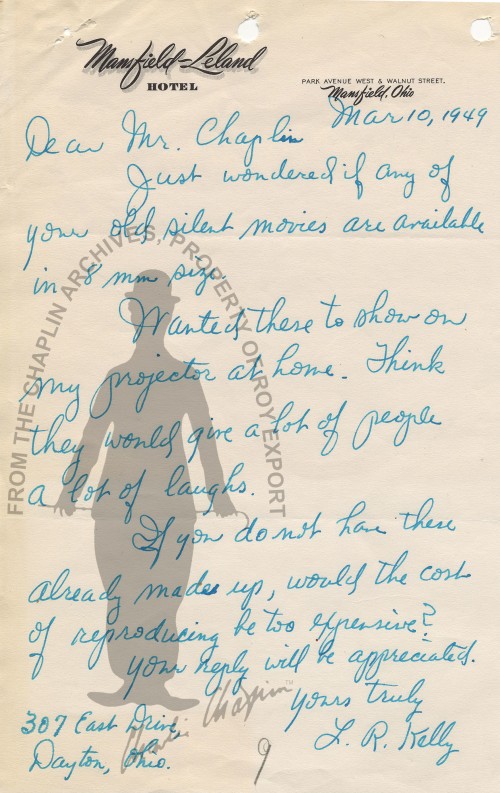 Mansfield-Leland
HOTEL
PARK AVENUE WEST & WALNUT STREET.
Mansfield, Ohio
Mar 10, 1949
Dear Mr. Chaplin
Just wondered if any of
your old silent movies are available
in 8 mm size.
Wanted these to show on
my projector at home. Think
they would give a lot of people
a lot of laughs.
If you do not have these
already made up, would the cost
of reproducing be too expensive?
Your reply will be appreciated.
Yours truly
L. R. Kelly
307 East Drive,
Dayton, Ohio.
9
FROM THE CHAPLIN ARCHIVES, PROPERTY OF ROY EXPORT
Charlie Chaplin™